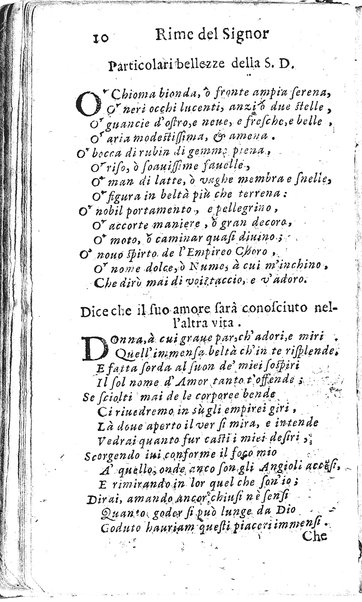 10 Rime del Signor
Particolari bellezze della S. D.
O Chioma bionda, ò fronte ampia serena,
O neri occhi lucenti, anzi ò due stelle,
O guancie d'ostro, e neue, e fresche, e belle,
O aria modestissima, & amena.
O bocca di rubin di gemme piena,
O riso, ò soauissime fauelle,
O man di latte, ò vaghe membra e snelle,
O figura in beltà più che terrena:
O nobil portamento, e pellegrino,
O accorte maniere, ò gran decoro,
O moto, ò caminar quasi diuino;
O nouo spirto de l'Empireo Choro,
O nome dolce, ò Nume, à cui m'inchino,
Che dirò mai di voi? taccio, e v'adoro.
Dice che il suo amore sarà conosciuto nel-
l'altra vita.
Donna, à cui graue par, ch'adori, e miri
Quell'immensa beltà ch'in te risplende,
E fatta sorda al suon de' miei sospiri
Il sol nome d'Amor tanto t'offende;
Se sciolti mai de le corporee bende
Ci riuedremo in sù gli empirei giri,
Là doue aperto il ver si mira, e intende
Vedrai quanto fur casti i miei desiri,
Scorgendo iui conforme il foco mio
A' quello, onde anco son gli Angioli accesi,
E rimirando in lor quel che son'io;
Dirai, amando ancor chiusi nè sensi
Quanto goder si può lunge da Dio
Goduto hauriam questi piaceri immensi.
Che